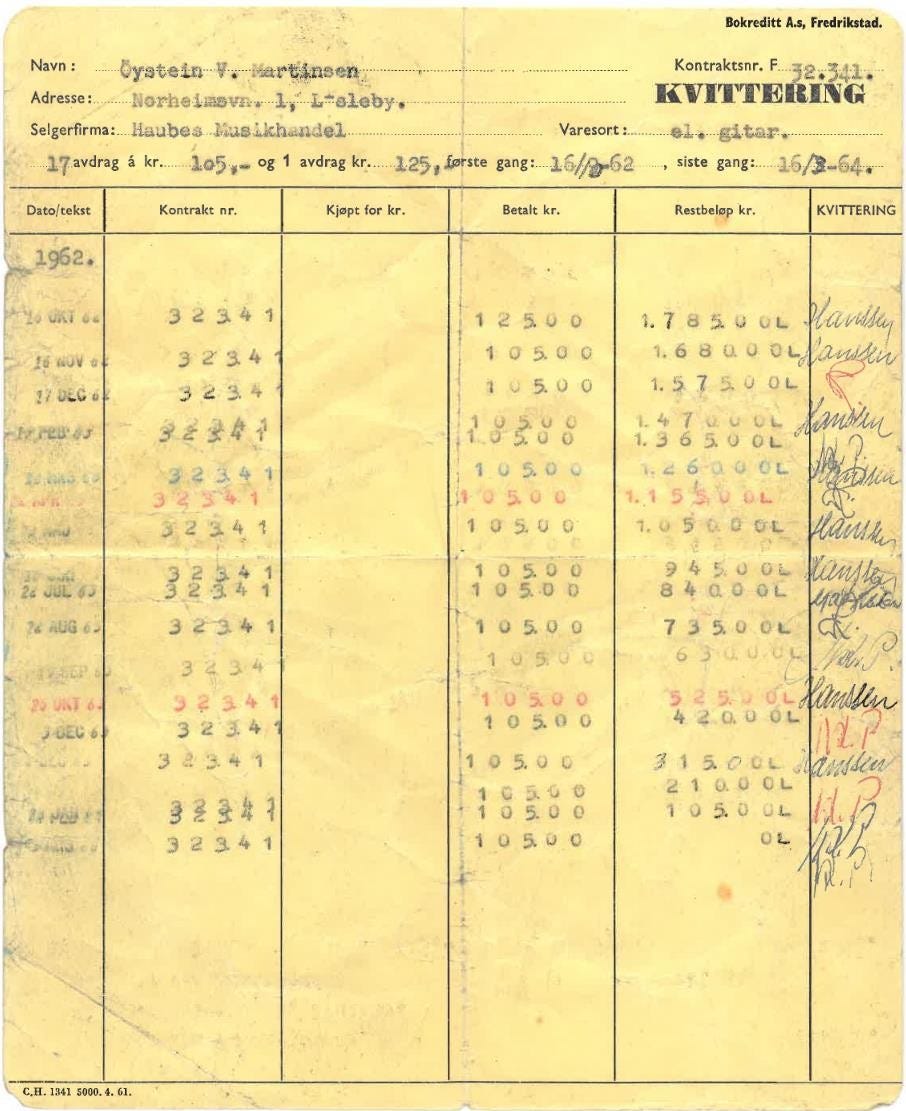 Bokreditt A.s, Fredrikstad.
Navn: Öystein V. Martinsen Kontraktsnr. F 32.341.
Adresse: Norheimsvn. 1, L-sleby. KVITTERING
Selgerfirma: Haubes Musikhandel Varesort: el. gitar.
17 avdrag á kr. 105,- og 1 avdrag kr. 125, første gang: 16/ -62, siste gang: 16/3-64.
Dato/tekst Kontrakt nr. Kjøpt for kr. Betalt kr. Restbeløp kr. KVITTERING
1962.
16 OKT 62 32341 125.00 1.785.00L Hanssen
16 NOV 62 32341 105.00 1.680.00L Hanssen
17 DEC 62 32341 105.00 1.575.00L
32341 105.00 1.470.00L Hanssen
FEB 63 32341 105.00 1.365.00L
MRS 63 32341 105.00 1.260.00L Hanssen
APR 32341 105.00 1.155.00L
MAJ 32341 105.00 1.050.00L Hanssen
32341 105.00 945.00L Hanssen
22 JUL 63 32341 105.00 840.00L
26 AUG 63 32341 105.00 735.00L
SEP 63 32341 105.00 630.00L
25 OKT 63 32341 105.00 525.00L Hanssen
3 DEC 63 32341 105.00 420.00L
DEC 63 32341 105.00 315.00L Hanssen
32341 105.00 210.00L
FEB 64 32341 105.00 105.00L
32341 105.00 0L
C.H. 1341 5000. 4. 61.